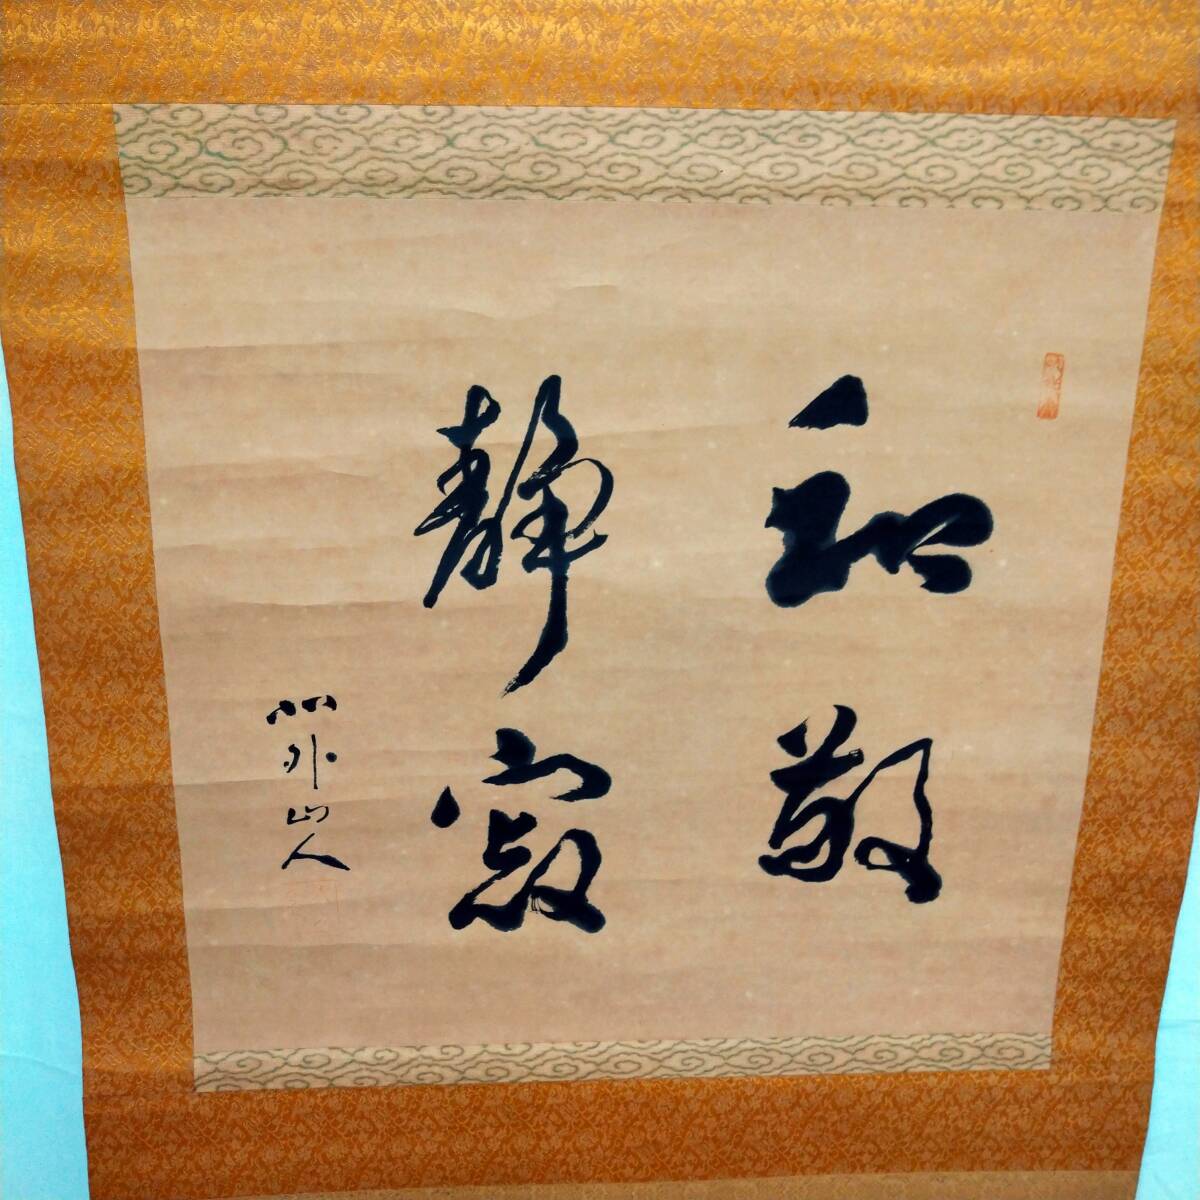 和敬
静寂
外山人